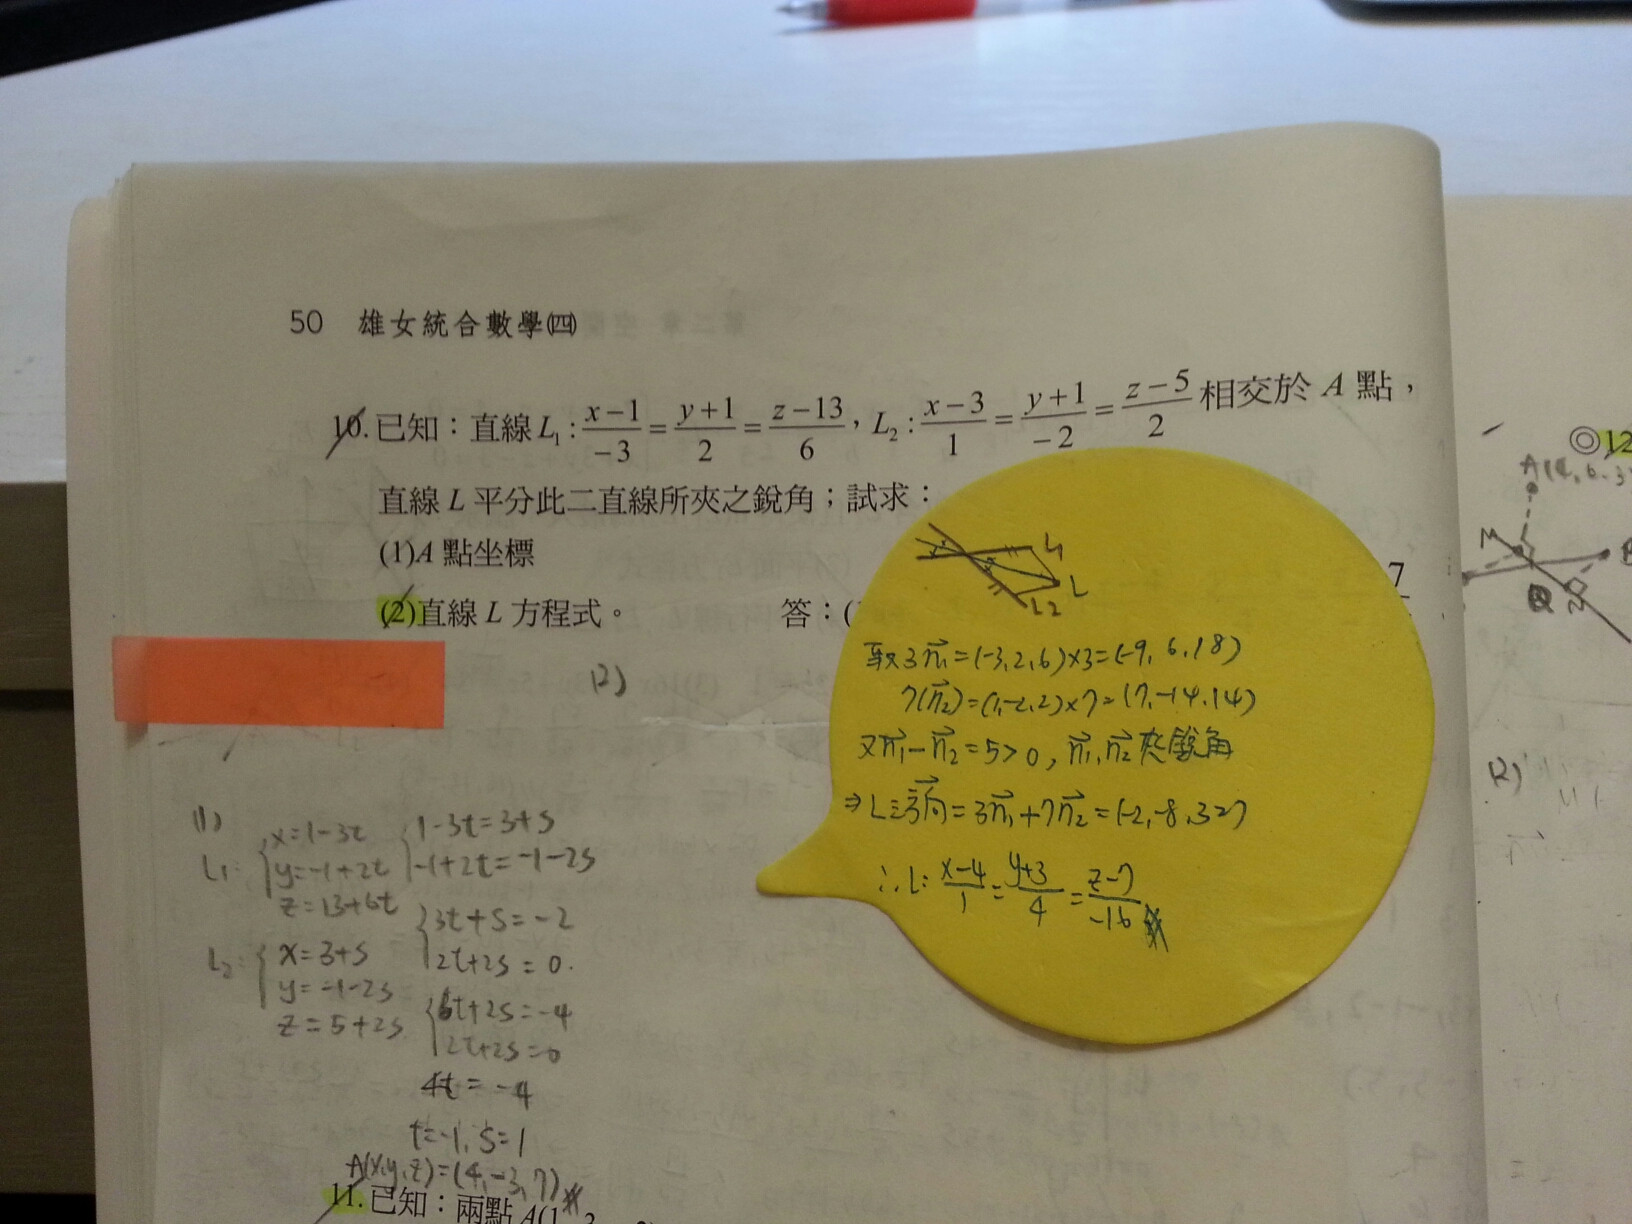 50 雄女統合數學(四)
10. 已知：直線 L₁ : (x−1)/−3 = (y+1)/2 = (z−13)/6 , L₂ : (x−3)/1 = (y+1)/−2 = (z−5)/2 相交於 A 點，
直線 L 平分此二直線所夾之銳角；試求：
(1)A 點坐標
(2)直線 L 方程式。 答：(
7
(2)
L₁
L
L₂
取3n₁=(-3,2,6)×3=(-9,6,18)
7(n₂)=(1,-2,2)×7=(7,-14,14)
又n₁-n₂=5>0, n₁,n₂夾銳角
⇒L之方向=3n₁+7n₂=(-2,-8,32)
∴L: (x-4)/1 = (y+3)/4 = (z-7)/-16
(1)
L₁: { x=1-3t
y=-1+2t
z=13+6t
L₂: { x=3+s
y=-1-2s
z=5+2s
{ 1-3t=3+s
-1+2t=-1-2s
{ 3t+s=-2
2t+2s=0.
{ 6t+2s=-4
2t+2s=0
4t=-4
t=-1, s=1
A(x,y,z)=(4,-3,7)
11. 已知：兩點 A(1
◎12
A(4,6,3
M
N
(2)